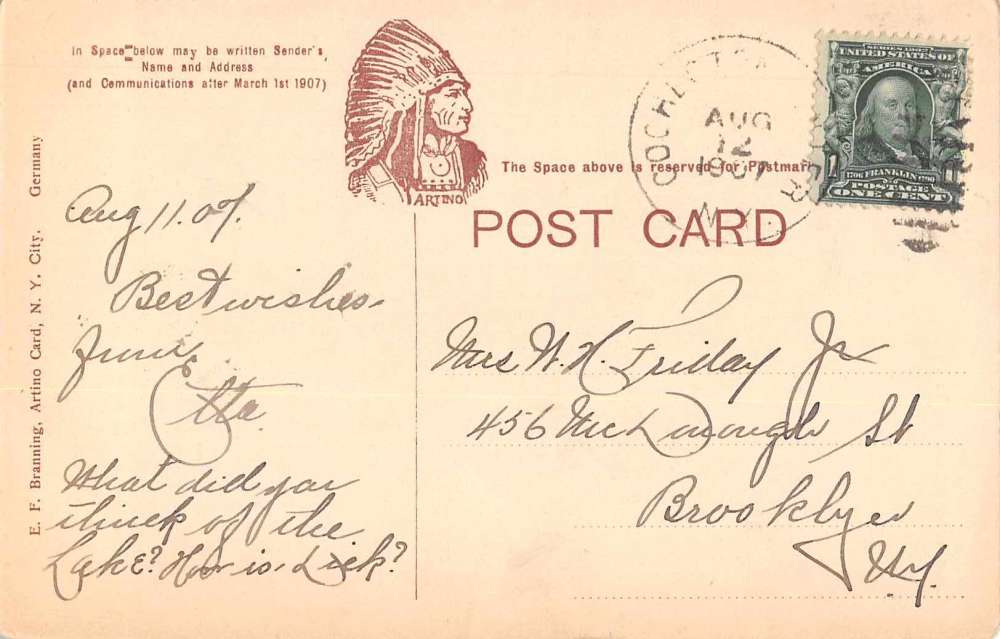 In Space below may be written Sender's
Name and Address
(and Communications after March 1st 1907)
ARTINO
The Space above is reserved for Postmark
POST CARD
COCHECTON
AUG
12
1907
N.Y.
SERIES 1902
UNITED STATES OF
AMERICA
1706 FRANKLIN 1790
POSTAGE
ONE CENT
E. F. Branning, Artino Card, N. Y. City. Germany
Aug 11.07.
Best wishes
from
Etta.
What did you
think of the
Lake? How is Dick?
Mrs W. H. Friday Jr
456 McDonough St
Brooklyn
N.Y.